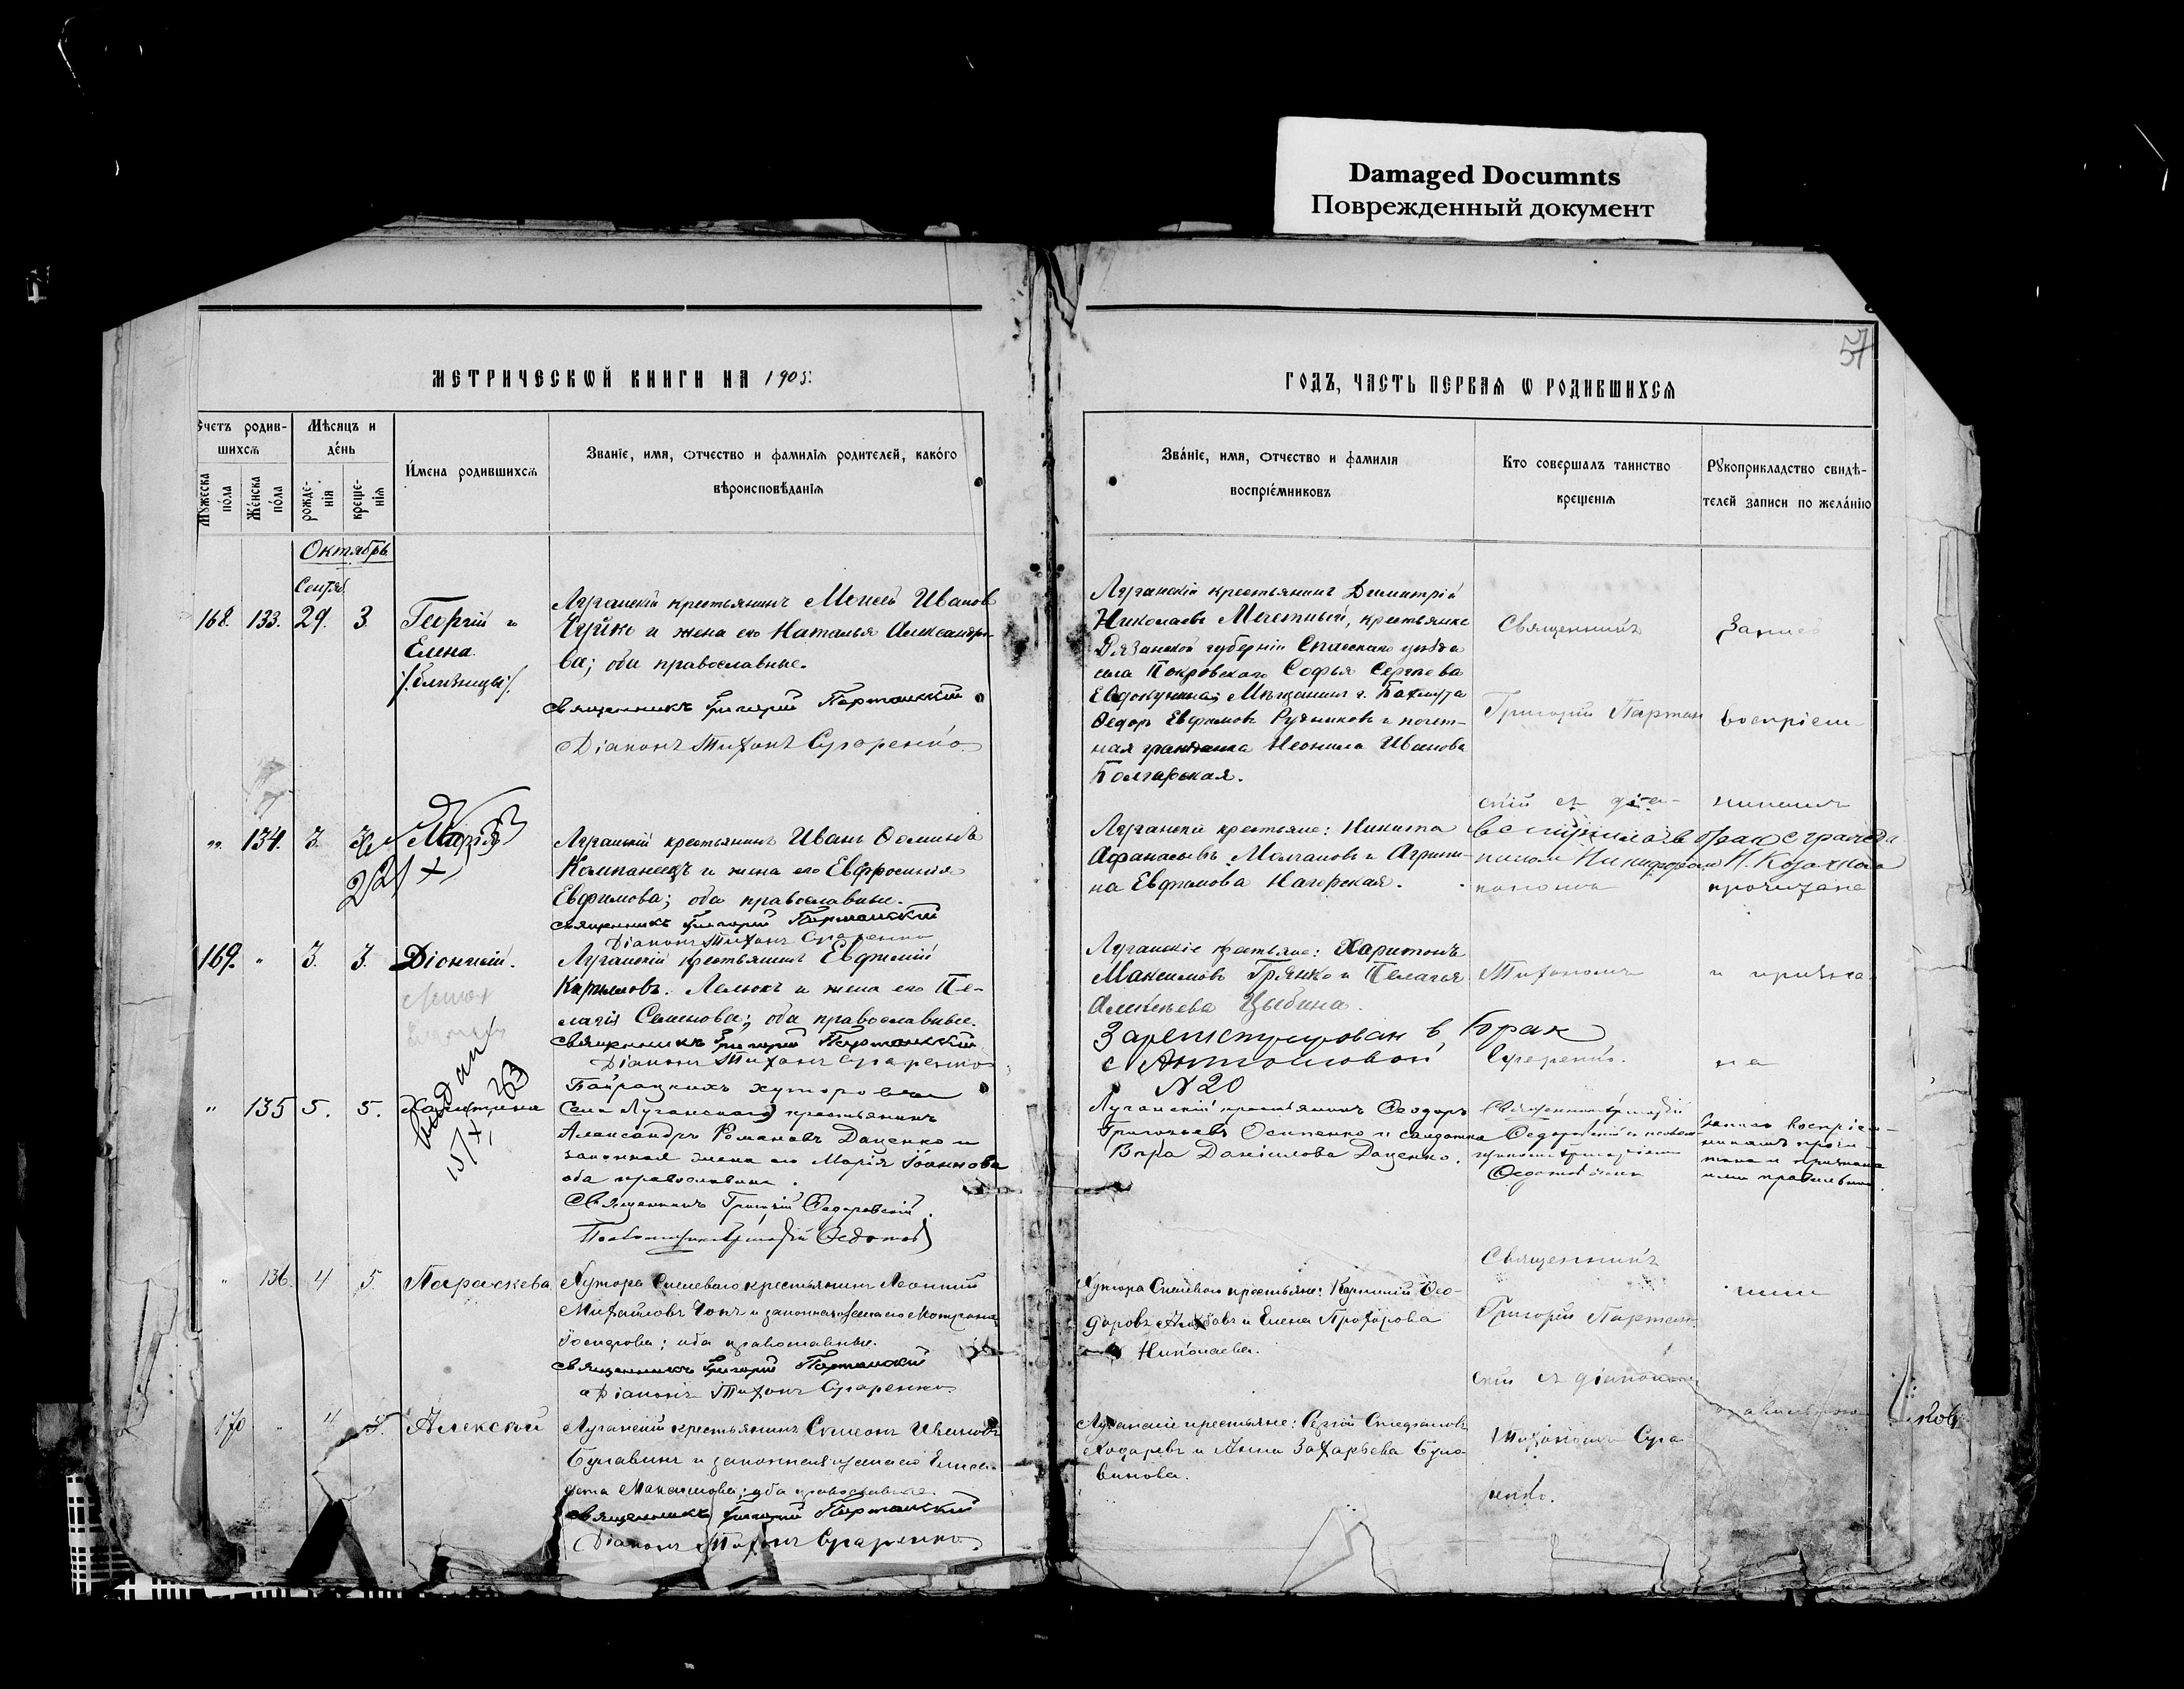 Damaged Documnts
Поврежденный документ
57
МЕТРИЧЕСКѠЙ КНИГИ НА 1905.
ГОДЪ, ЧАСТЬ ПЕРВАЯ Ѡ РОДИВШИХСЯ
Счетъ родив-
шихся
Мужеска пола
Женска пола
Мѣсяцъ и
день
рожде-
нія
креще-
нія
Имена родившихся
Званіе, имя, отчество и фамилія родителей, какого
вѣроисповѣданія
Званіе, имя, отчество и фамилія
воспріемниковъ
Кто совершалъ таинство
крещенія
Рукоприкладство свидѣ-
телей записи по желанію
Октябрь
Сентяб.
168. 133. 29. 3.
Георгій и
Елена
/близнецы/.
Луганскій крестьянинъ Моисей Иванов
и жена его Наталья Александро-
ва; оба православные.
Священникъ Григорій Партанскій
Діаконъ Тихонъ Сугаренко
Луганскій крестьянинъ Димитрій
Николаевъ Мечетный, крестьянка
Рязанской губерніи Спасскаго уѣзда
села Покровскаго Софья Сергѣева
Евдокушина, Мѣщанинъ г. Бахмута
Ѳедоръ Евфимовъ Рудниковъ и почет-
ная гражданка Неонила Иванова
Болгарская.
Священникъ
Григорій Партан
скій съ діа-
кономъ
Тихономъ
Сугаренко.
Запись
воспріем-
никами
прочитана
и призна
на
" 134. 3.
Марія
21/X
Луганскій крестьянинъ Иванъ Ѳоминъ
Компанеецъ и жена его Евфросинія
Евфимова; оба православные.
Священникъ Григорій Партанскій
Діаконъ Тихонъ Сугаренко
Луганскіе крестьяне: Никита
Аѳанасьевъ Молчановъ и Агрипи-
на Евфимова Нагорская.
вступила в брак с гражда
нином Никифором Н. Козаков
169. " 3. 3.
Діонисій.
Луганскій крестьянинъ Евфимій
Кирилловъ Лелюкъ и жена его Пе-
лагія Семенова; оба православные.
Священникъ Григорій Партанскій
Діаконъ Тихонъ Сугаренко
Луганскіе крестьяне: Харитонъ
Максимовъ Грянко и Пелагія
Алексѣева Цыбина.
Зарегистрирован в, брак
с Антоновой
N 20
" 135 5. 5.
Харитина
выдан
15/X
63
Байрацкихъ хуторовъ
Села Луганскаго крестьянинъ
Александръ Романовъ Даценко и
законная жена его Марія Іоаннова
оба православны.
Священникъ Григорій Ѳедоровскій.
Псаломщикъ Григорій Ѳедотов
Луганскій крестьянинъ Ѳеодоръ
Григорьевъ Осипенко и солдатка
Вѣра Даніилова Даценко.
Священникъ Григорій
Ѳедоровскій с псалом-
щикомъ Григоріемъ
Ѳедотовымъ
Запись воспріем-
никамъ прочи-
тана и признана
ими правильною.
" 136. 4 5.
Параскева
Хутора Смѣлаго крестьянинъ Леонтій
Михайловъ Чопъ и законная жена его Мотрона
Іосифова; оба православные.
Священникъ Григорій Партанскій
Діаконъ Тихонъ Сугаренко
Хутора Смѣлаго крестьяне: Корнилій Ѳео-
доровъ и Елена Прохорова
Николаева.
Священникъ
Григорій Партан
скій съ діакономъ
Тихономъ Суга
ренко.
ными
170 " 4 5.
Алексѣй
Луганскій крестьянинъ Симеонъ Ивановъ
Булавинъ и законная жена его Елиса-
вета Максимова; оба православные.
Священникъ Григорій Партанскій
Діаконъ Тихонъ Сугаренко.
Луганскіе крестьяне: Сергѣй Стефановъ
Ходаревъ и Анна Захарьева Була-
винова.